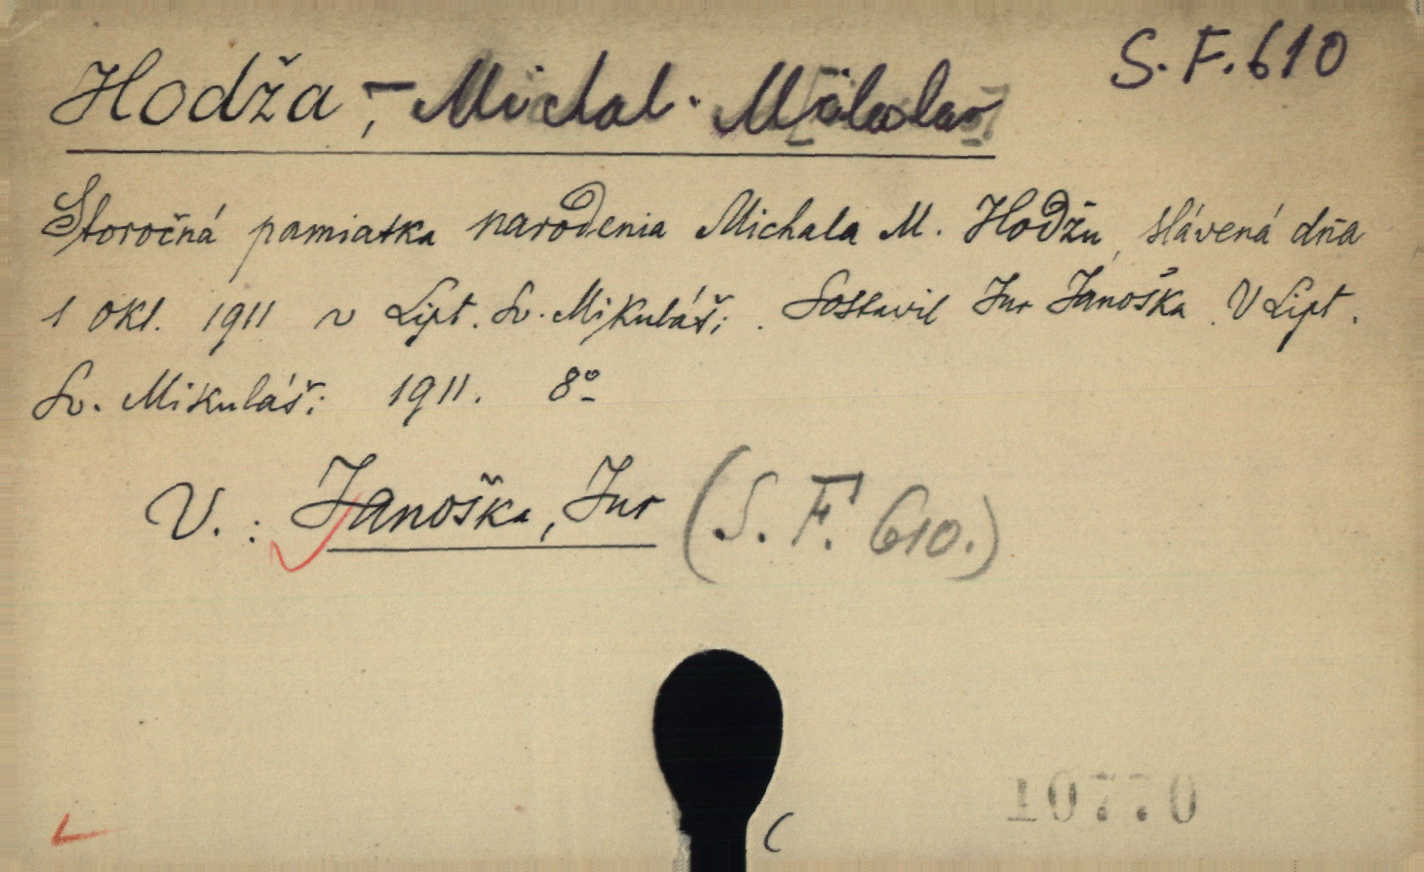 S. F. 610
Hodža, - Michal Miloslav
Storočná pamiatka narodenia Michala M. Hodžu, slávená dňa
1 okt. 1911 v Lipt. Sv. Mikuláši. Sostavil Jur Janoška. V Lipt.
Sv. Mikuláši 1911. 8°
V.: Janoška, Jur (S. F. 610.)
10770
C